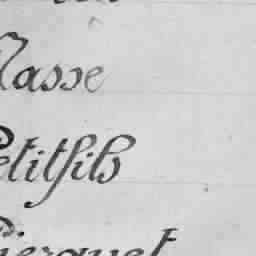 Masse
Petitfils
Pierquet